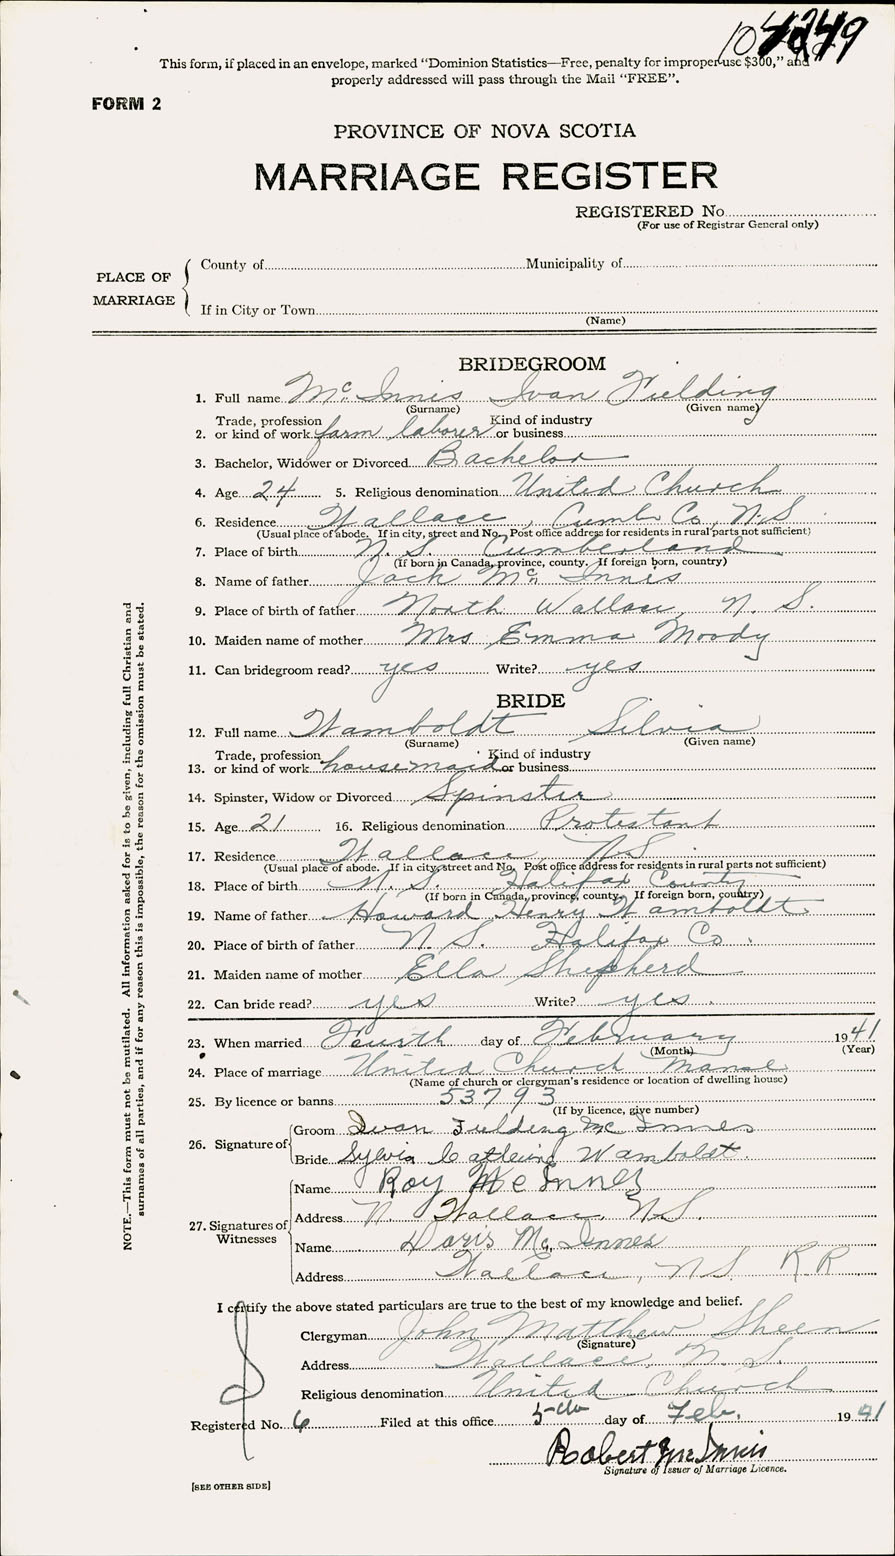 This form, if placed in an envelope, marked "Dominion Statistics—Free, penalty for improper use $300," and
properly addressed will pass through the Mail "FREE".
FORM 2
PROVINCE OF NOVA SCOTIA
MARRIAGE REGISTER
REGISTERED No.
(For use of Registrar General only)
PLACE OF MARRIAGE
County of Municipality of
If in City or Town
(Name)
BRIDEGROOM
1. Full name McInnis Ivan Fielding
(Surname) (Given name)
Trade, profession Kind of industry
2. or kind of work farm laborer or business
3. Bachelor, Widower or Divorced Bachelor
4. Age 24 5. Religious denomination United Church
6. Residence Wallace, Cumb Co, N.S
(Usual place of abode. If in city, street and No. Post office address for residents in rural parts not sufficient)
7. Place of birth N. S. Cumberland
(If born in Canada, province, county. If foreign born, country)
8. Name of father Jack McInnis
9. Place of birth of father North Wallace, N. S.
10. Maiden name of mother Mrs Emma Moody
11. Can bridegroom read? yes Write? yes
BRIDE
12. Full name Wamboldt Silvia
(Surname) (Given name)
Trade, profession Kind of industry
13. or kind of work housemaid or business
14. Spinster, Widow or Divorced Spinster
15. Age 21 16. Religious denomination Protestant
17. Residence Wallace N S
(Usual place of abode. If in city, street and No. Post office address for residents in rural parts not sufficient)
18. Place of birth N. S. Halifax County
(If born in Canada, province, county. If foreign born, country)
19. Name of father Howard Henry Wamboldt
20. Place of birth of father N. S. Halifax Co.
21. Maiden name of mother Ella Shepherd
22. Can bride read? yes Write? yes.
23. When married Fourth day of February 1941
(Month) (Year)
24. Place of marriage United Church Manse
(Name of church or clergyman's residence or location of dwelling house)
25. By licence or banns 53793
(If by licence, give number)
26. Signature of
Groom Ivan Fielding McInnes
Bride Sylvia Catleing Wamboldt.
27. Signatures of Witnesses
Name Roy McInnes
Address N. Wallace, N.S.
Name Doris McInnes
Address Wallace, N.S. R R
I certify the above stated particulars are true to the best of my knowledge and belief.
Clergyman John Matthew Sheen
(Signature)
Address Wallace, N. S.
Religious denomination United Church
Registered No. 6 Filed at this office 5th day of Feb. 1941
Robert McInnis
Signature of Issuer of Marriage Licence.
[SEE OTHER SIDE]
NOTE.—This form must not be mutilated. All information asked for is to be given, including full Christian and
surnames of all parties, and if for any reason this is impossible, the reason for the omission must be stated.